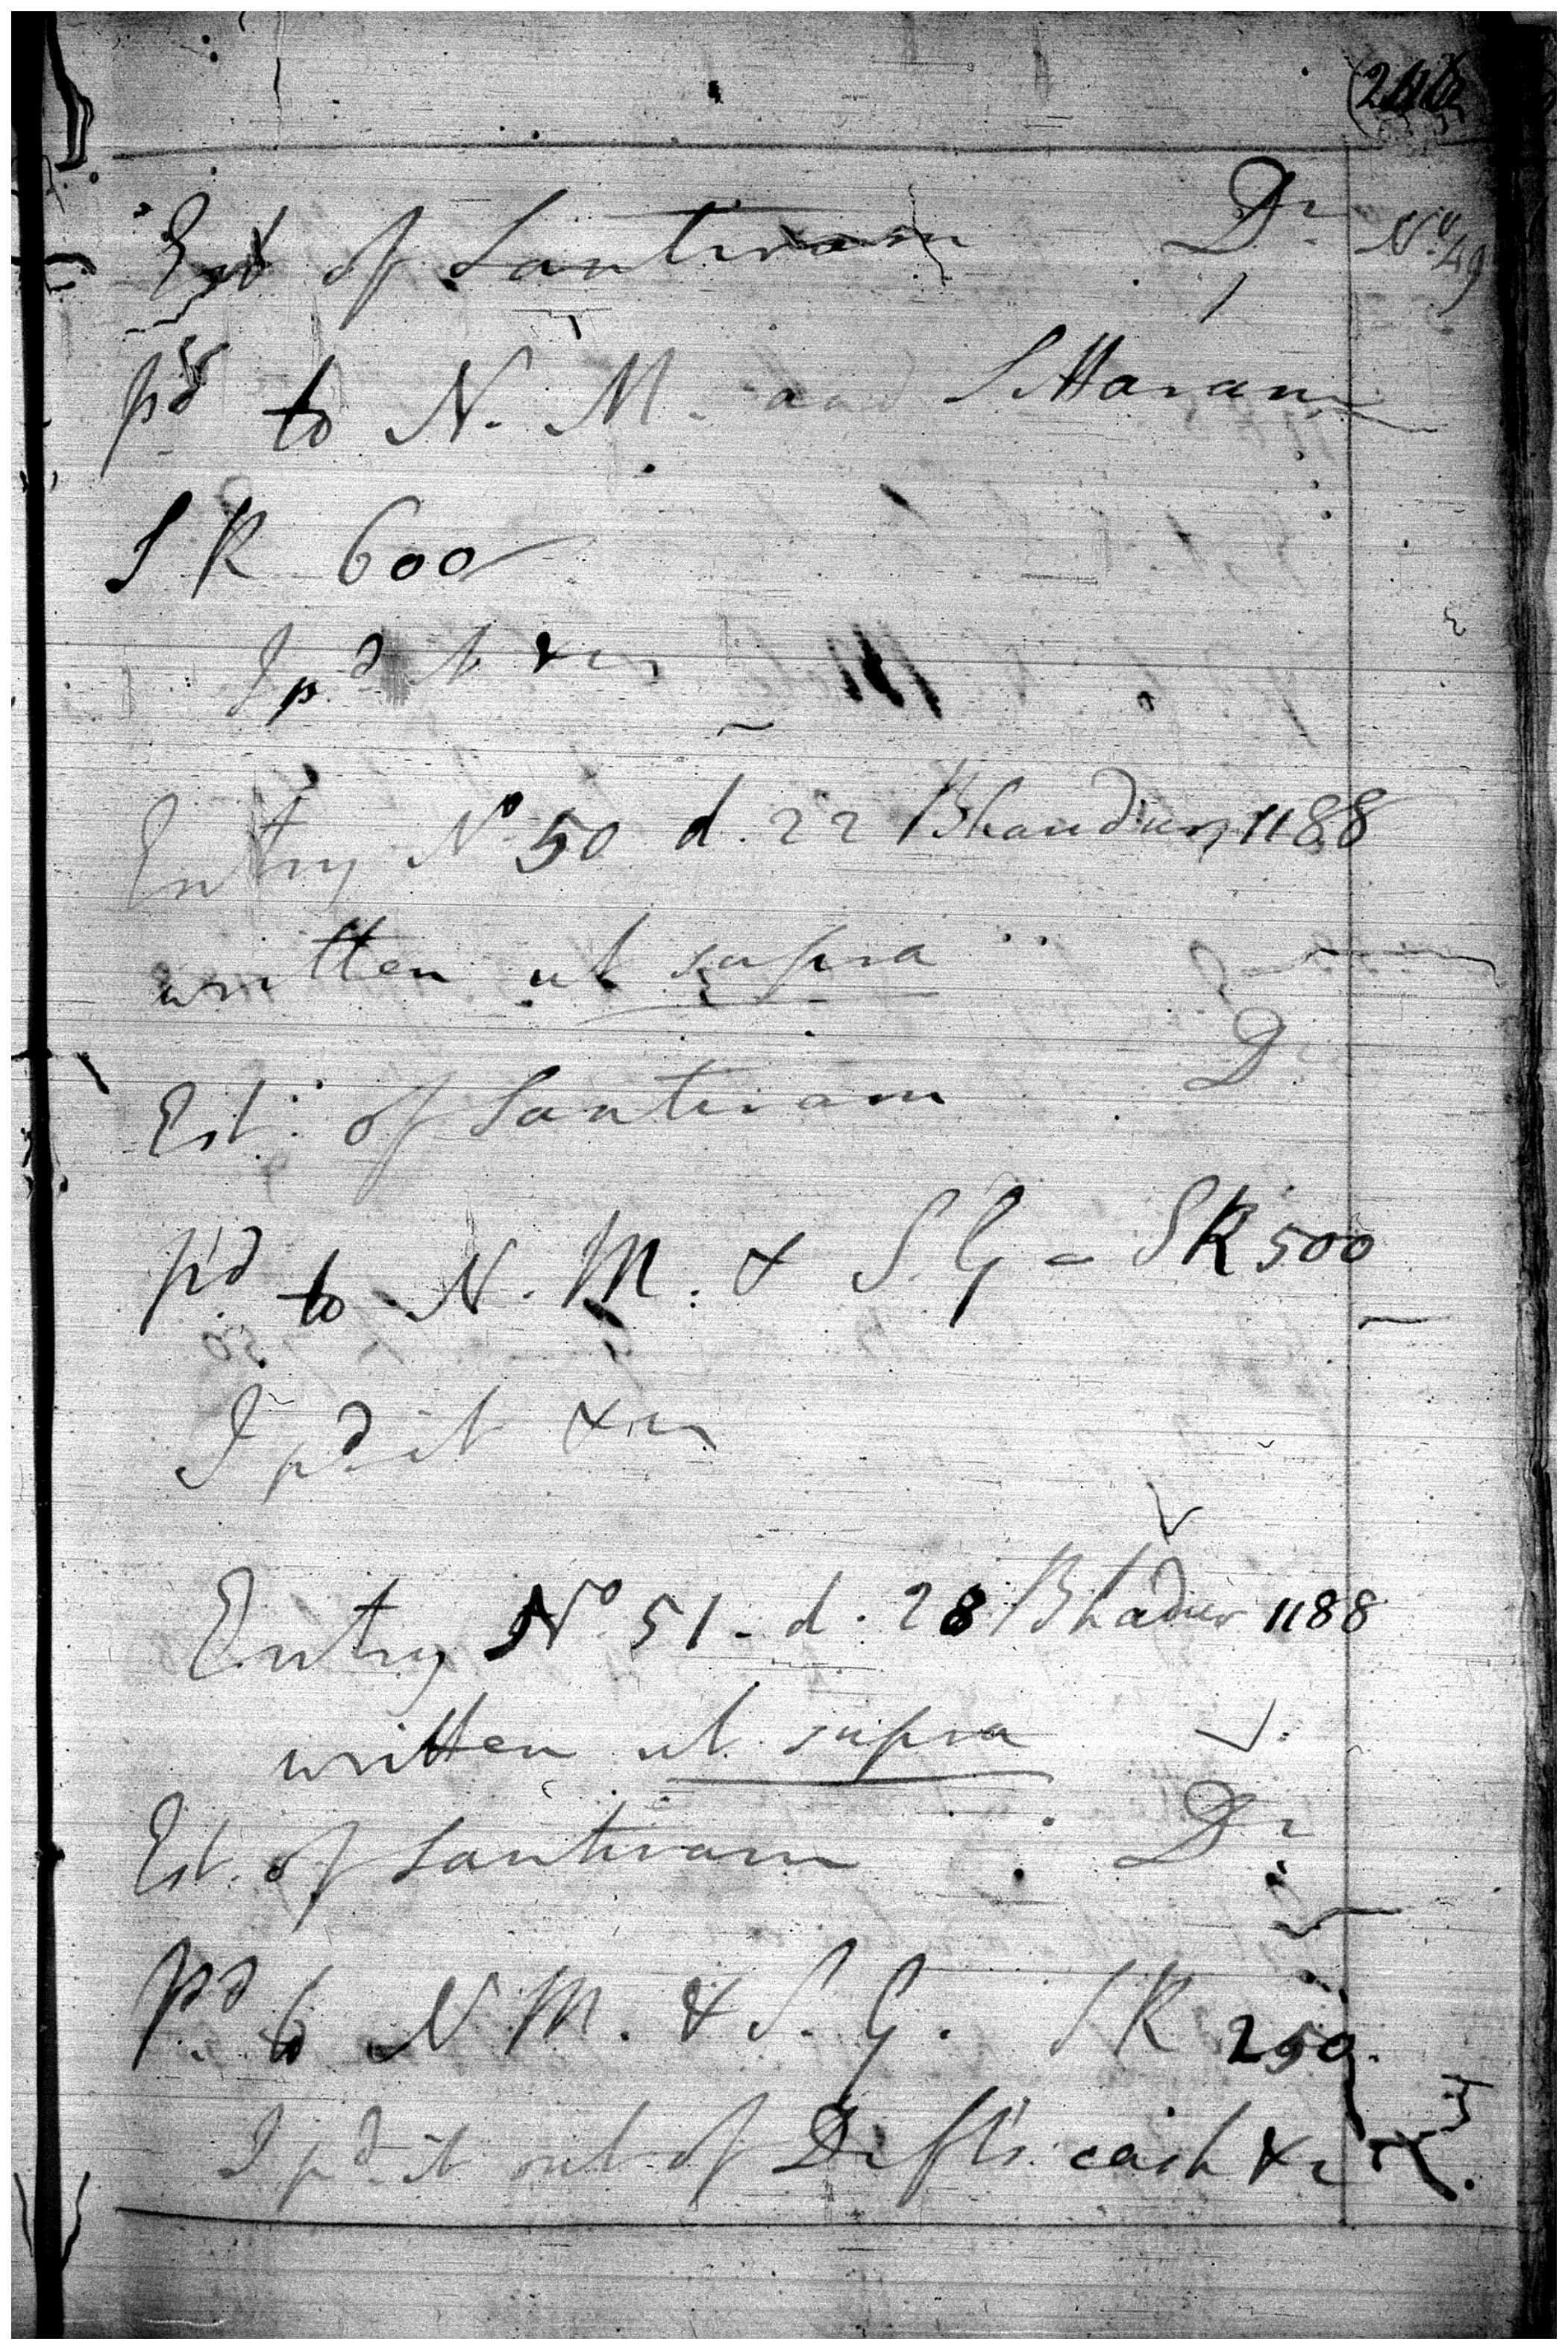 Est of Santiram Dr No. 49
pd to N. M. and Sittaram
S R 600
I pd it &c
Entry No 50 d. 22 Bhaudur 1188
written ut supra
Est. of Santiram Dr
pd to N. M. & S. G - S R 500
I pd it &c
Entry No 51 - d. 28 Bhadur 1188
written ut supra
Est. of Santiram Dr
pd to N. M. & S. G. S R 250.
I pd it out of Defts. cash &c